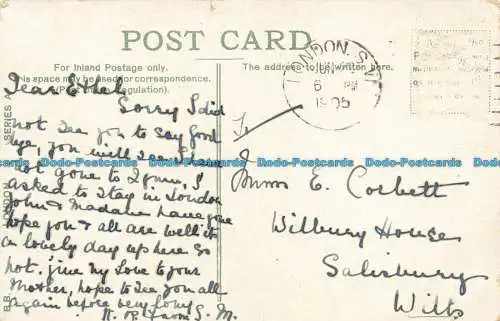 POST CARD
For Inland Postage only.
This space may be used for correspondence.
(Post Office Regulation).
The address to be written here.
LONDON. S.W.
6 PM
05
B.B. LONDON SERIES
Dear Ethel
Sorry I did
not See you to say good
bye, you will I have
not gone to I
asked to stay in London
John & Madalin have gone
hope you & all are well it's
a lovely day up here so
hot. give my Love to your
Mother, hope to See you all
again before very long
from S. M.
E. Corbett
Wilbury House
Salisbury
Wilts
Dodo-Postcards Dodo-Postcards Dodo-Postcards Dodo-Postcards